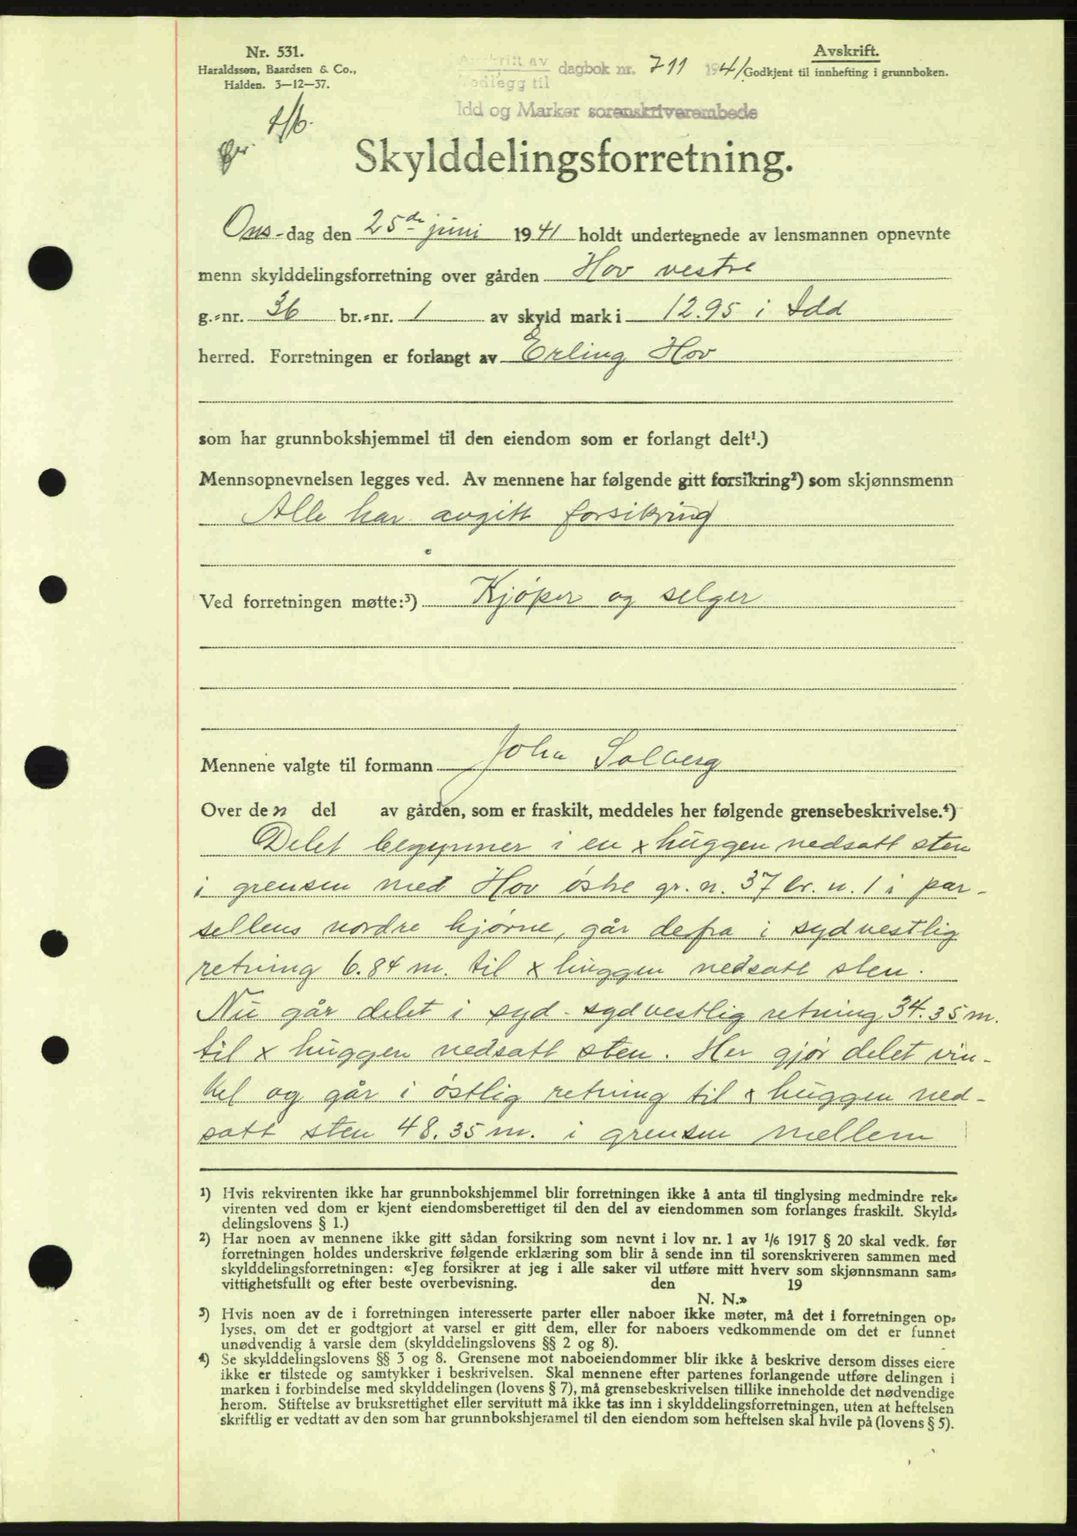 Nr. 531.
Haraldssøn, Baardsen & Co.,
Halden. 3—12—37.
Avskrift av
Vedlegg til
dagbok nr. 711 1941
Idd og Marker sorenskriverembede
Avskrift.
Godkjent til innhefting i grunnboken.
Skylddelingsforretning.
Ons-dag den 25de juni 1941 holdt undertegnede av lensmannen opnevnte
menn skylddelingsforretning over gården Hov vestre
g.-nr. 36 br.-nr. 1 av skyld mark i 12.95 i Idd
herred. Forretningen er forlangt av Erling Hov
som har grunnbokshjemmel til den eiendom som er forlangt delt¹.)
Mennsopnevnelsen legges ved. Av mennene har følgende gitt forsikring²) som skjønnsmenn
Alle har avgitt forsikring
Ved forretningen møtte:³) Kjöper og selger
Mennene valgte til formann John Solberg
Over den del av gården, som er fraskilt, meddeles her følgende grensebeskrivelse.⁴)
Delet begynner i en x huggen nedsatt sten
i grensen med Hov östre gr. n. 37 br. n. 1 i par-
sellens nordre hjörne, går derfra i sydvestlig
retning 6.84 m. til x huggen nedsatt sten.
Nu går delet i syd-sydvestlig retning 34.35 m.
til x huggen nedsatt sten. Her gjör delet vin-
kel og går i östlig retning til x huggen ned-
satt sten 48.35 m. i grensen mellem
¹) Hvis rekvirenten ikke har grunnbokshjemmel blir forretningen ikke å anta til tinglysing medmindre rek-
virenten ved dom er kjent eiendomsberettiget til den del av eiendommen som forlanges fraskilt. Skyld-
delingslovens § 1.)
²) Har noen av mennene ikke gitt sådan forsikring som nevnt i lov nr. 1 av 1/6 1917 § 20 skal vedk. før
forretningen holdes underskrive følgende erklæring som blir å sende inn til sorenskriveren sammen med
skylddelingsforretningen: «Jeg forsikrer at jeg i alle saker vil utføre mitt hverv som skjønnsmann sam-
vittighetsfullt og efter beste overbevisning. den 19
N. N.»
³) Hvis noen av de i forretningen interesserte parter eller naboer ikke møter, må det i forretningen op-
lyses, om det er godtgjort at varsel er gitt dem, eller for naboers vedkommende om det er funnet
unødvendig å varsle dem (skylddelingslovens §§ 2 og 8).
⁴) Se skylddelingslovens §§ 3 og 8. Grensene mot naboeiendommer blir ikke å beskrive dersom disses eiere
ikke er tilstede og samtykker i beskrivelsen. Skal mennene efter partenes forlangende utføre delingen i
marken i forbindelse med skylddelingen (lovens § 7), må grensebeskrivelsen tillike inneholde det nødvendige
herom. Stiftelse av bruksrettighet eller servitutt må ikke tas inn i skylddelingsforretningen, uten at heftelsen
skriftlig er vedtatt av den som har grunnbokshjemmel til den eiendom som heftelsen skal hvile på (lovens § 5).